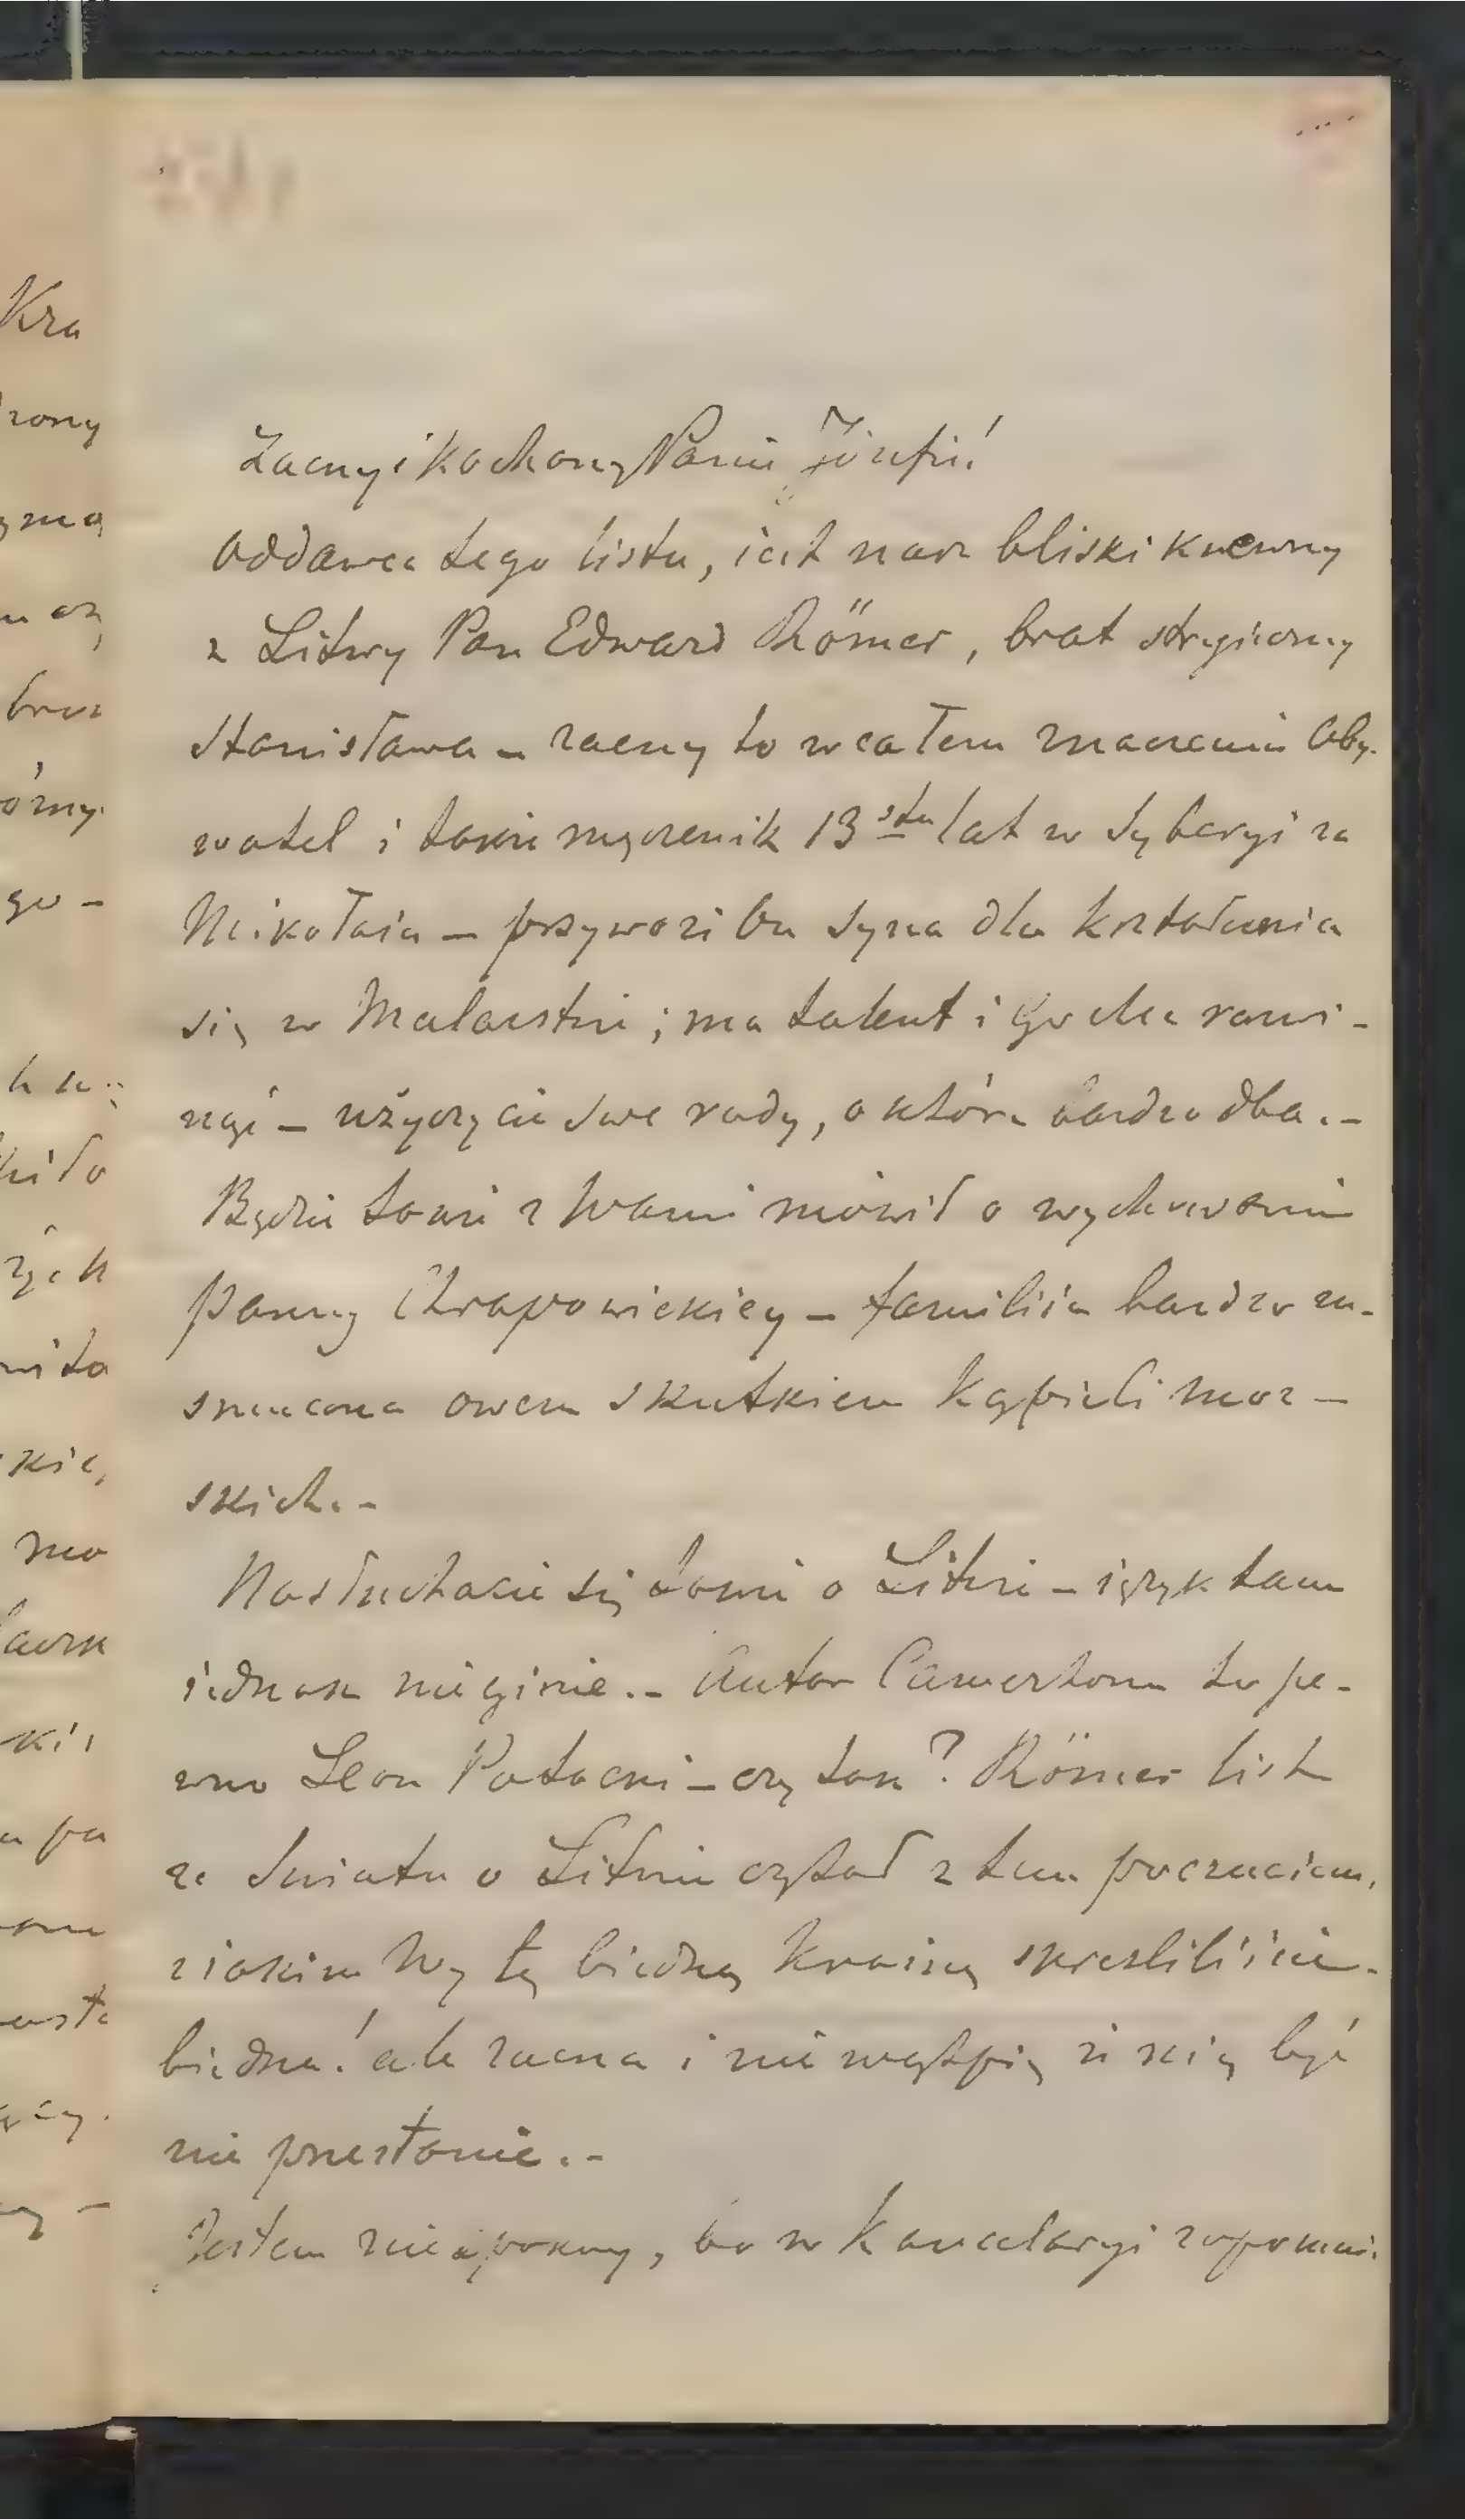 Zacny i kochany Panie Józefie!
Oddawca tego listu, iest nasz bliski krewny
z Litwy Pan Edward Römer, brat stryieczny
Stanisława – zacny to w całem znaczeniu Oby-
watel i także męczenik 13stu lat w Syberyi za
Mikołaia – przywozi On syna dla kształcenia
się w Malarstwie; ma talent i Go chce rozwi-
nąć – użyczycie swe rady, o które bardzo dba. –
Będzie także z Wami mówił o wychowaniu
panny Chrapowickiey – familiia bardzo za-
smucona owem skutkiem kąpieli mor-
skich. –
Nasłuchacie się także o Litwie – ięzyk tam
iednak nie ginie. – Autor Camertona to pe-
wno Leon Potocki – czy tak? Römer list
ze Swiata o Litwie czytał z tem poczuciem,
z iakiem Wy tę biedną krainę skreśliliście –
biedna! ale zacna i nie wątpię że nią być
nie przestanie. –
Jestem niespokoyny, bo w kancelaryi zapomni-